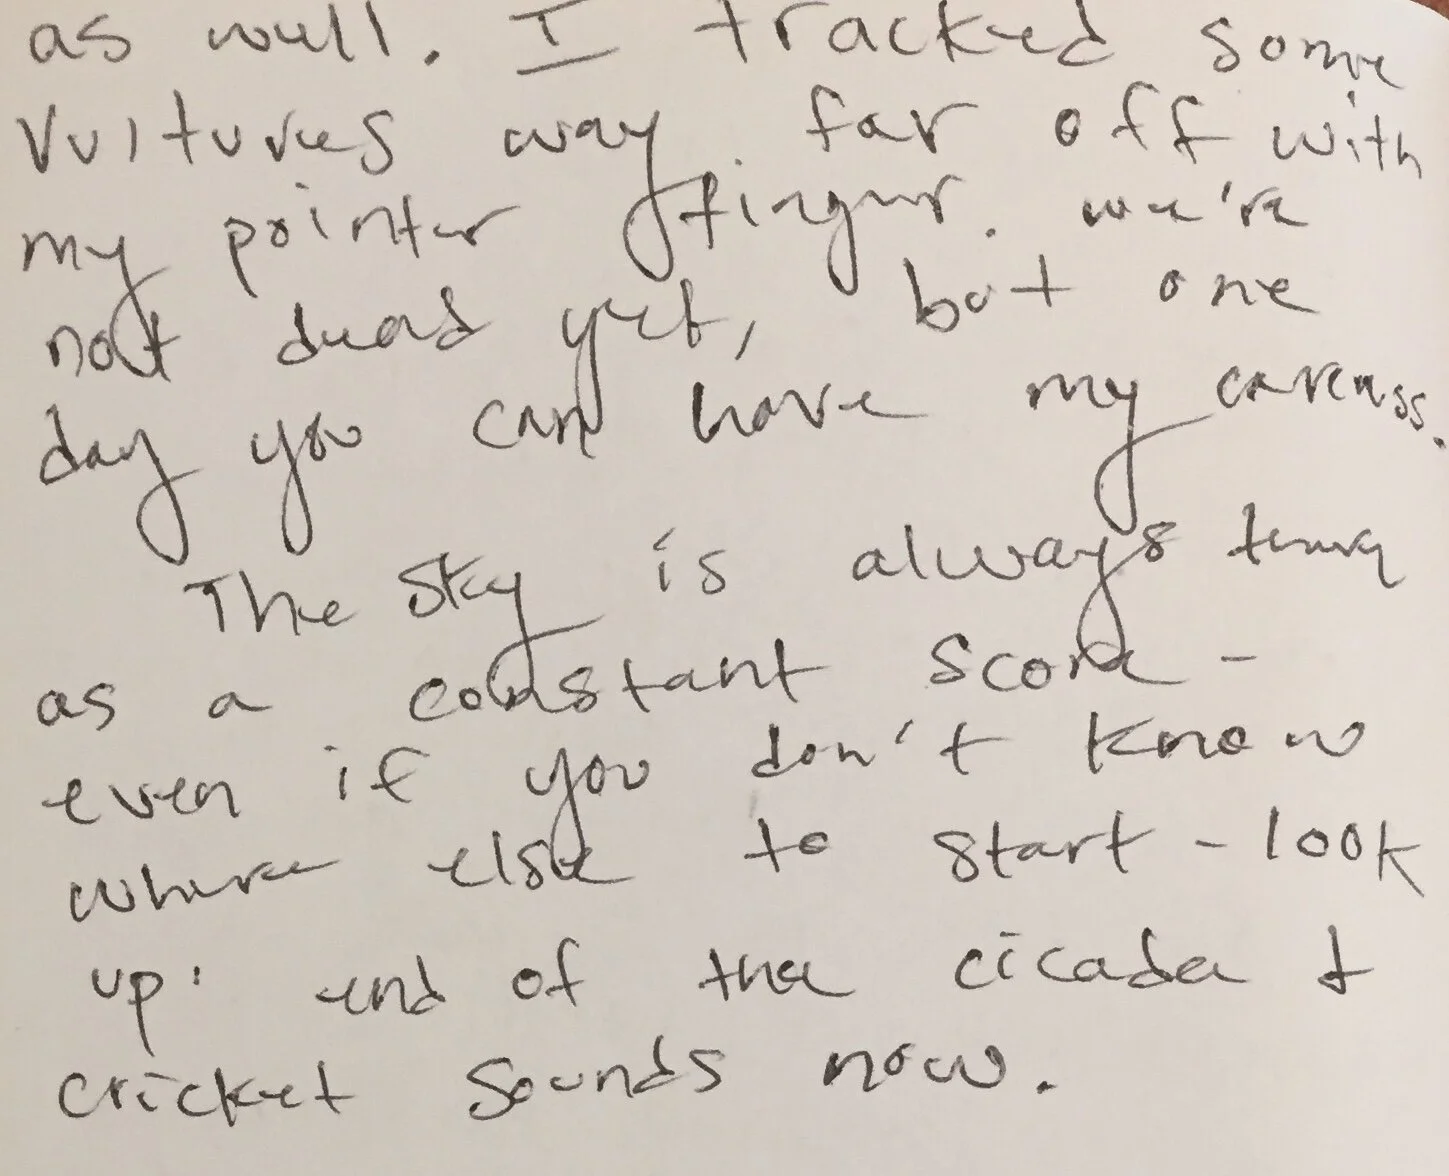 as well. I tracked some
vultures way far off with
my pointer finger. we're
not dead yet, but one
day you can have my carcass.
The sky is always there
as a constant score -
even if you don't know
where else to start - look
up. end of the cicada &
cricket sounds now.